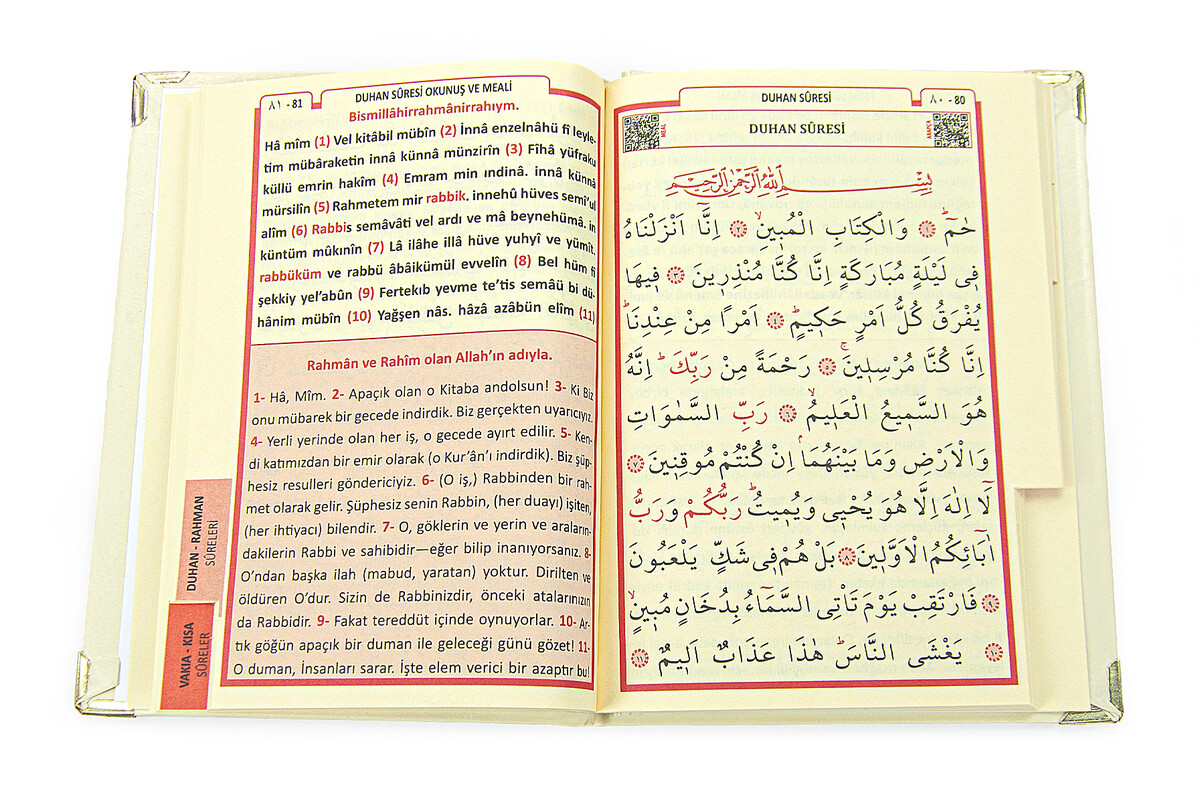 ٨١ - 81
DUHAN SÛRESİ OKUNUŞ VE MEALİ
Bismillâhirrahmânirrahıym.
Hâ mîm (1) Vel kitâbil mübîn (2) İnnâ enzelnâhü fî leyle-
tim mübâraketin innâ künnâ münzirîn (3) Fîhâ yüfraku
küllü emrin hakîm (4) Emram min ındinâ. innâ künnâ
mürsilîn (5) Rahmetem mir rabbik. innehû hüves semî'ul
alîm (6) Rabbis semâvâti vel ardı ve mâ beynehümâ. in
küntüm mûkınîn (7) Lâ ilâhe illâ hüve yuhyî ve yümît.
rabbüküm ve rabbü âbâikümül evvelîn (8) Bel hüm fî
şekkiy yel'abûn (9) Fertekıb yevme te'tis semâü bi dü-
hânim mübîn (10) Yağşen nâs. hâzâ azâbün elîm (11)
Rahmân ve Rahîm olan Allah'ın adıyla.
1- Hâ, Mîm. 2- Apaçık olan o Kitaba andolsun! 3- Ki Biz
onu mübarek bir gecede indirdik. Biz gerçekten uyarıcıyız.
4- Yerli yerinde olan her iş, o gecede ayırt edilir. 5- Ken-
di katımızdan bir emir olarak (o Kur'ân'ı indirdik). Biz şüp-
hesiz resulleri göndericiyiz. 6- (O iş,) Rabbinden bir rah-
met olarak gelir. Şüphesiz senin Rabbin, (her duayı) işiten,
(her ihtiyacı) bilendir. 7- O, göklerin ve yerin ve araların-
dakilerin Rabbi ve sahibidir—eğer bilip inanıyorsanız. 8-
O'ndan başka ilah (mabud, yaratan) yoktur. Dirilten ve
öldüren O'dur. Sizin de Rabbinizdir, önceki atalarınızın
da Rabbidir. 9- Fakat tereddüt içinde oynuyorlar. 10- Ar-
tık göğün apaçık bir duman ile geleceği günü gözet! 11-
O duman, İnsanları sarar. İşte elem verici bir azaptır bu!
DUHAN - RAHMAN
SÛRELERİ
VAKIA - KISA
SÛRELER
DUHAN SÛRESİ
٨٠ - 80
MEAL
DUHAN SÛRESİ
ARAPÇA
بِسْمِ اللّٰهِ الرَّحْمٰنِ الرَّحِيمِ
حٰمٓ ۚ ﴿١﴾ وَالْكِتَابِ الْمُبٖينِۙ ﴿٢﴾ اِنَّٓا اَنْزَلْنَاهُ
فٖي لَيْلَةٍ مُبَارَكَةٍ اِنَّا كُنَّا مُنْذِرٖينَ ﴿٣﴾ فٖيهَا
يُفْرَقُ كُلُّ اَمْرٍ حَكٖيمٍۚ ﴿٤﴾ اَمْرًا مِنْ عِنْدِنَاۜ
اِنَّا كُنَّا مُرْسِلٖينَۚ ﴿٥﴾ رَحْمَةً مِنْ رَبِّكَۜ اِنَّهُ
هُوَ السَّمٖيعُ الْعَلٖيمُۙ ﴿٦﴾ رَبِّ السَّمٰوَاتِ
وَالْاَرْضِ وَمَا بَيْنَهُمَاۢ اِنْ كُنْتُمْ مُوقِنٖينَ ﴿٧﴾
لَٓا اِلٰهَ اِلَّا هُوَ يُحْيٖي وَيُمٖيتُۜ رَبُّكُمْ وَرَبُّ
اٰبَٓائِكُمُ الْاَوَّلٖينَ ﴿٨﴾ بَلْ هُمْ فٖي شَكٍّ يَلْعَبُونَ
﴿٩﴾ فَارْتَقِبْ يَوْمَ تَأْتِي السَّمَٓاءُ بِدُخَانٍ مُبٖينٍۙ
﴿١٠﴾ يَغْشَى النَّاسَۜ هٰذَا عَذَابٌ اَلٖيمٌ ﴿١١﴾